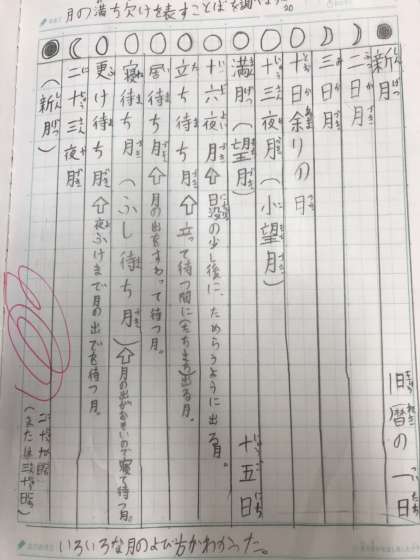 月の満ち欠けを表すことばを調べよう
新月 旧暦の一日
二日月
三日月
十日余りの月
十三夜月(小望月)
満月(望月) 十五日
十六夜月⇧日没の少し後に、ためらうように出る月。
立ち待ち月⇧立って待つ間に(たちまち)出る月。
居待ち月⇧月の出をすわって待つ月。
寝待ち月(ふし待ち月)⇧月の出がおそいので寝て待つ月。
更け待ち月⇧夜ふけまで月の出でを待つ月。
二十三夜月
(新月) 二十九日(または三十日)
いろいろな月のよび方がわかった。